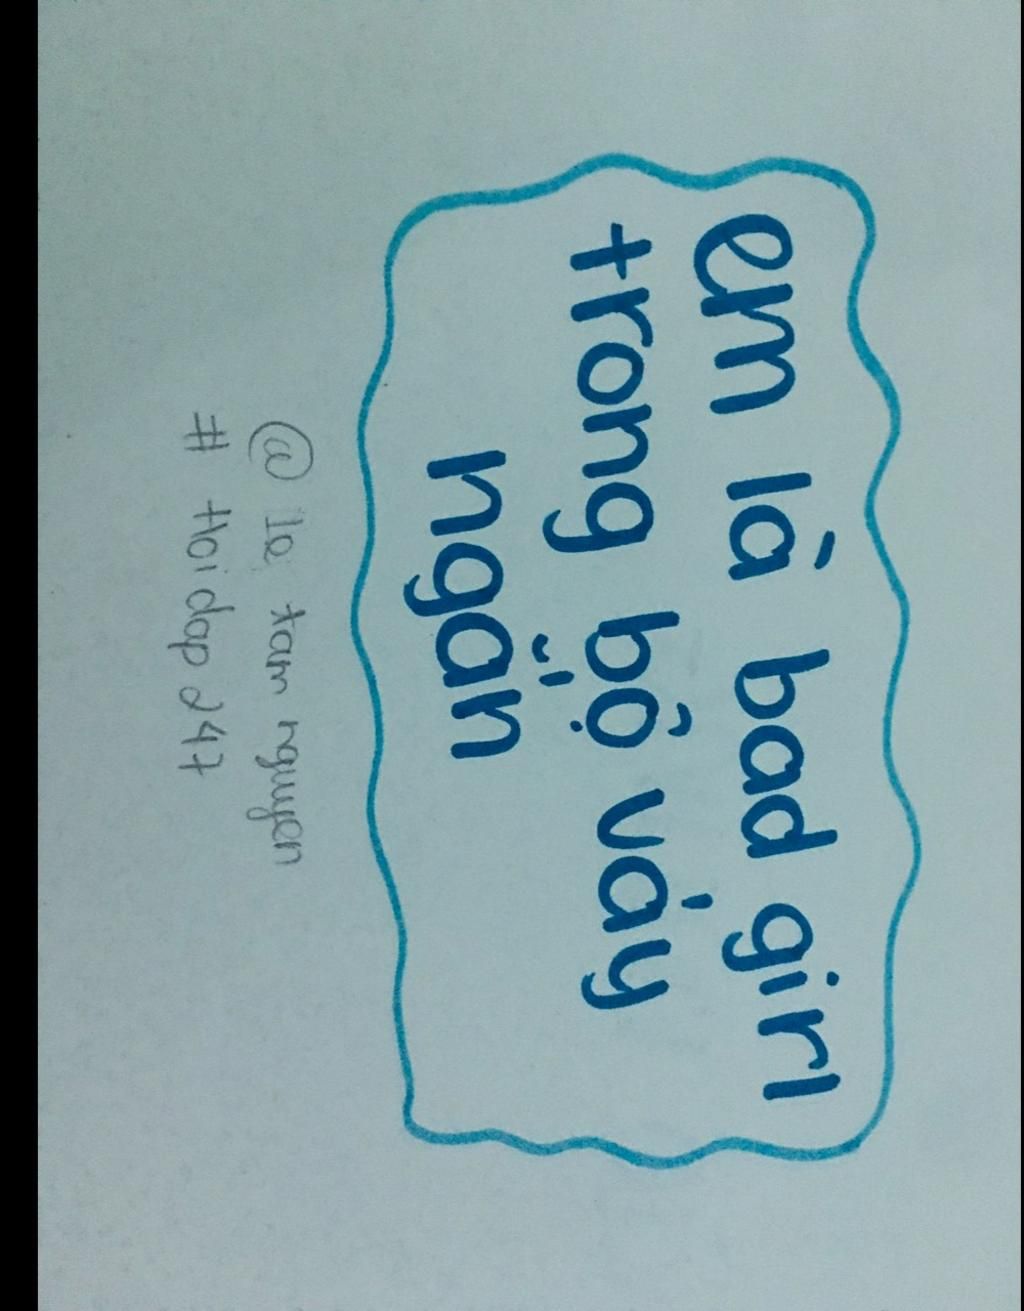 em là bad girl
trong bộ váy
ngắn
@ le tam nguyen
# Hoidap247